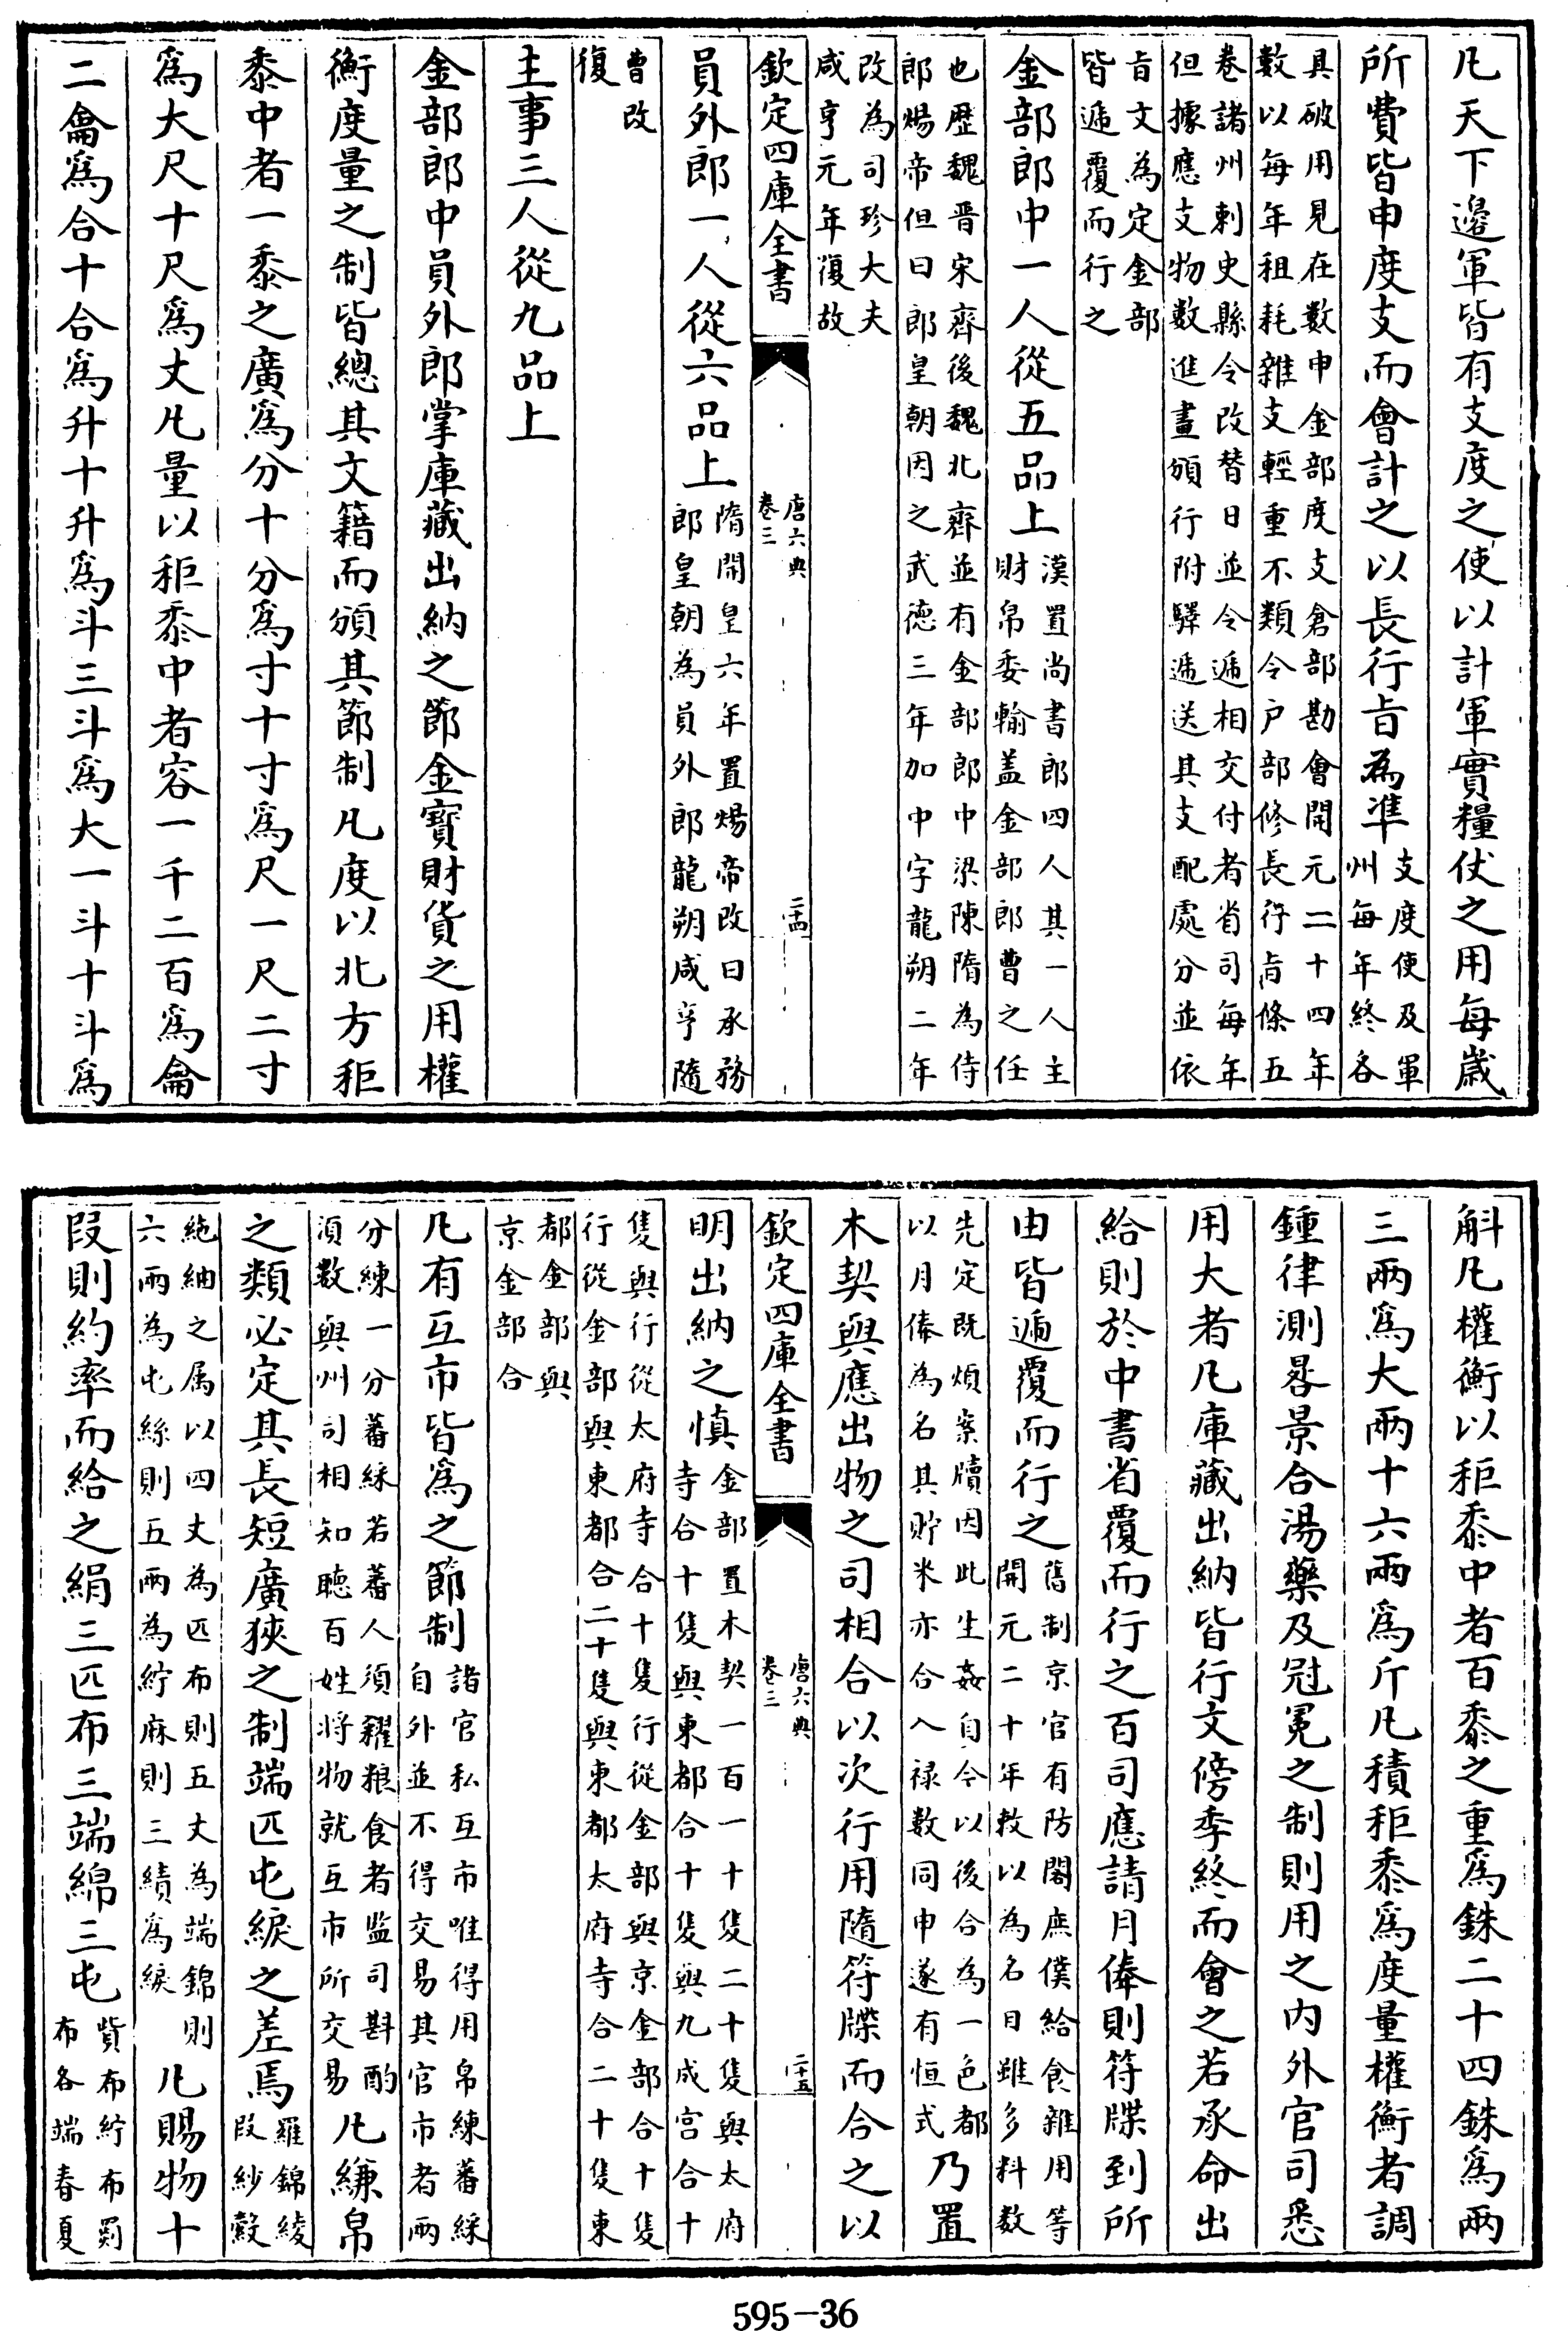 凡天下邊軍皆有支度之使以計軍實糧仗之用每歲
所費皆申度支而會計之以長行旨為準支度使及軍
州每年終各
具破用見在數申金部度支倉部勘會開元二十四年
數以每年租耗雜支輕重不類令户部修長行旨條五
卷諸州刺史縣令改替日並令遞相交付者省司每年
但據應支物數進畫頒行附驛遞送其支配處分並依
旨文為定金部
皆遞覆而行之
金部郎中一人從五品上漢置尚書郎四人其一人主
財帛委輸盖金部郎曹之任
也歷魏晋宋齊後魏北齊並有金部郎中梁陳隋為侍
郎煬帝但曰郎皇朝因之武德三年加中字龍朔二年
改為司珍大夫
咸亨元年復故
欽定四庫全書
唐六典
卷三
二十四
員外郎一人從六品上隋開皇六年置煬帝改曰承務
郎皇朝為員外郎龍朔咸亨隨
曹改
復
主事三人從九品上
金部郎中員外郎掌庫藏出納之節金寳財貨之用權
衡度量之制皆總其文籍而頒其節制凡度以北方秬
黍中者一黍之廣爲分十分爲寸十寸爲尺一尺二寸
爲大尺十尺爲丈凡量以秬黍中者容一千二百爲龠
二龠爲合十合爲升十升爲斗三斗爲大一斗十斗爲
斛凡權衡以秬黍中者百黍之重爲銖二十四銖爲兩
三兩爲大兩十六兩爲斤凡積秬黍爲度量權衡者調
鍾律測晷景合湯藥及冠冕之制則用之内外官司悉
用大者凡庫藏出納皆行文傍季終而會之若承命出
給則於中書省覆而行之百司應請月俸則符牒到所
由皆遞覆而行之舊制京官有防閤庶僕給食雜用等
開元二十年敕以為名目雖多料數
先定既煩案牘因此生姦自今以後合為一色都
以月俸為名其貯米亦合入禄數同申遂有恒式乃置
木契與應出物之司相合以次行用隨符牒而合之以
欽定四庫全書
唐六典
卷三
二十五
明出納之慎金部置木契一百一十隻二十隻與太府
寺合十隻與東都合十隻與九成宫合十
隻與行從太府寺合十隻行從金部與京金部合十隻
行從金部與東都合二十隻與東都太府寺合二十隻東
都金部與
京金部合
凡有互市皆爲之節制諸官私互市唯得用帛練蕃綵
自外並不得交易其官市者兩
分練一分蕃綵若蕃人須糴粮食者监司斟酌
須數與州司相知聽百姓將物就互市所交易凡縑帛
之類必定其長短廣狹之制端匹屯綟之差焉羅錦綾
段紗縠
絁紬之属以四丈為匹布則五丈為端錦則
六兩為屯絲則五兩為紵麻則三績爲綟凡賜物十
段則約率而給之絹三匹布三端綿三屯貲布紵布罽
布各端春夏
595-36